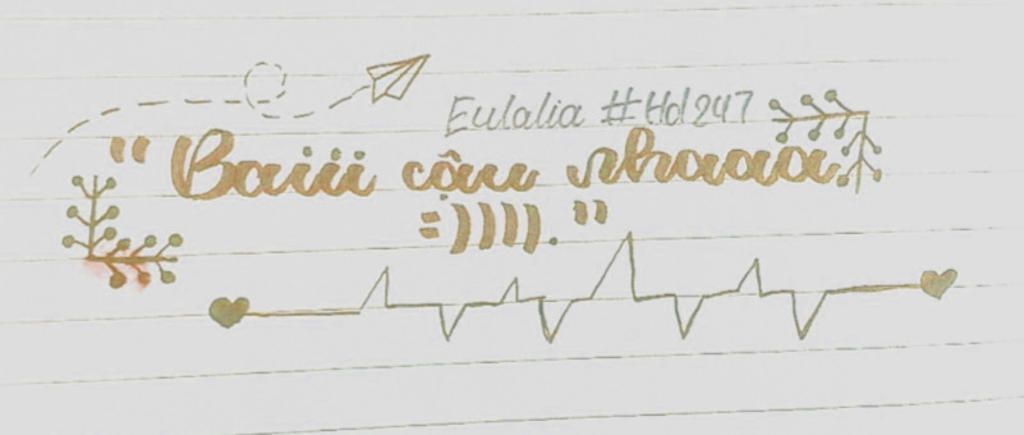 Eulalia #Hd247
"Baiii cậu nhaaaa
=)))).”